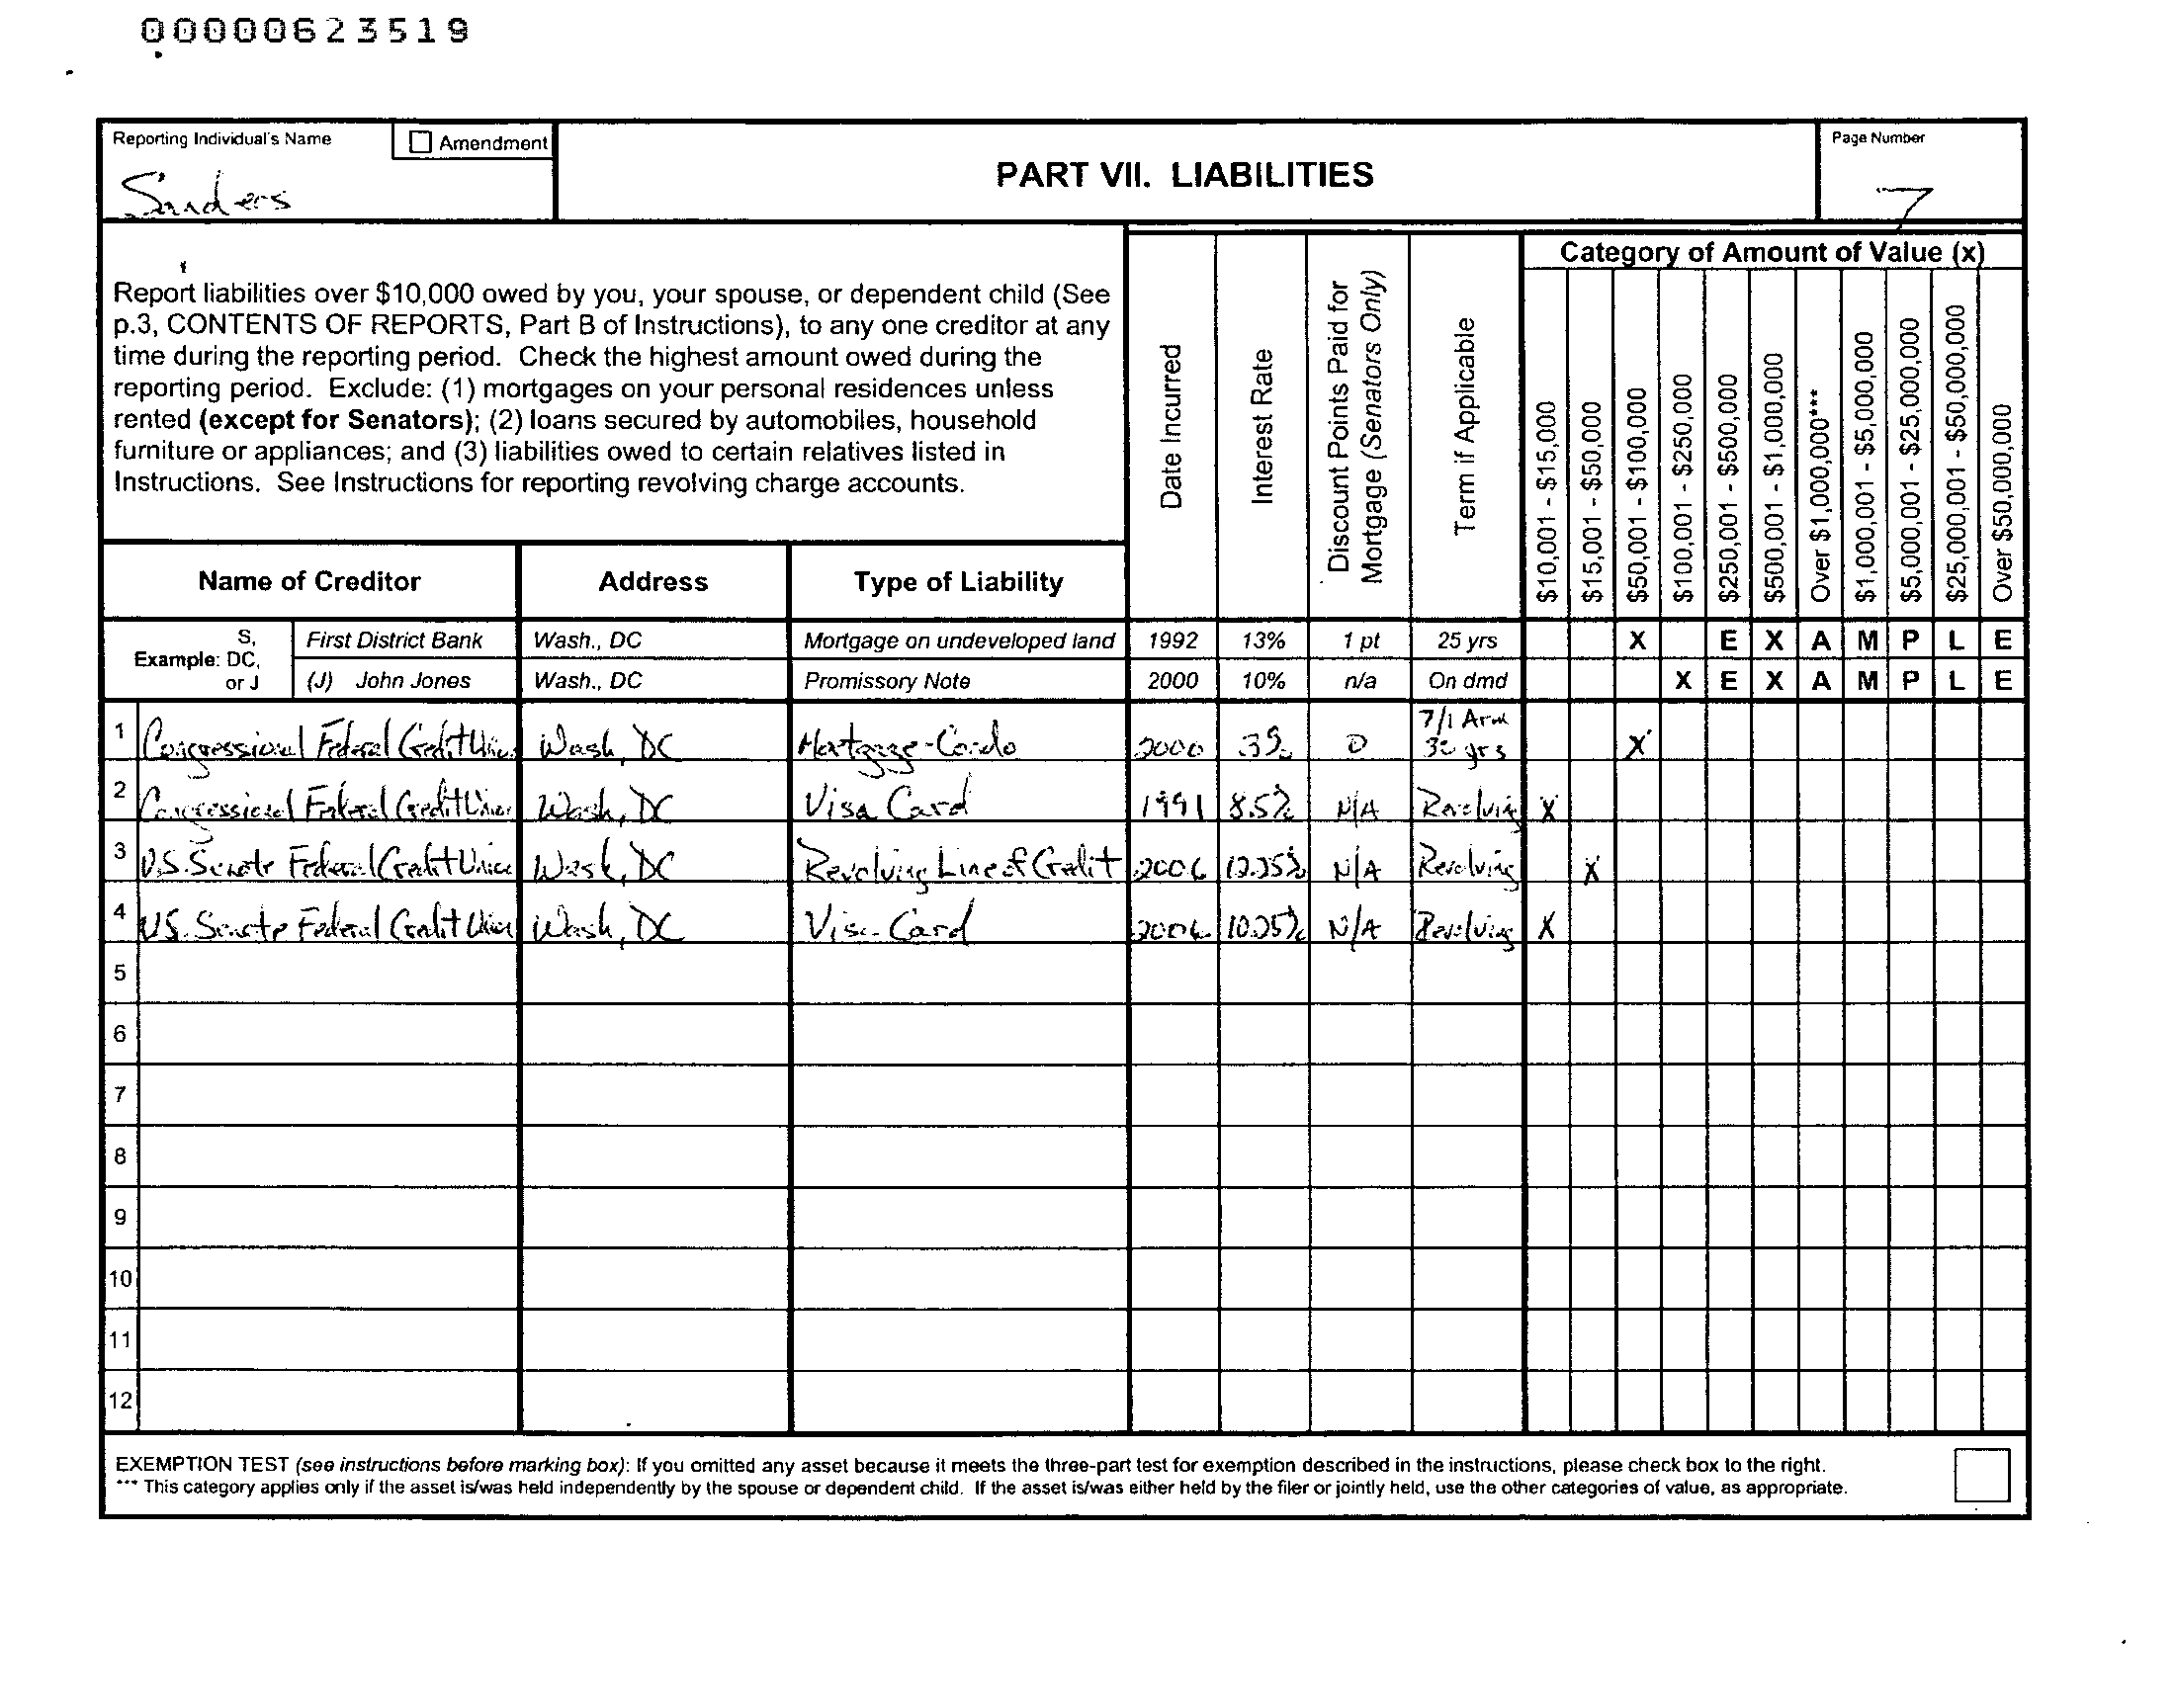 00000623519
Reporting Individual's Name
Amendment
Sanders
PART VII. LIABILITIES
Page Number
7
Report liabilities over $10,000 owed by you, your spouse, or dependent child (See
p.3, CONTENTS OF REPORTS, Part B of Instructions), to any one creditor at any
time during the reporting period. Check the highest amount owed during the
reporting period. Exclude: (1) mortgages on your personal residences unless
rented (except for Senators); (2) loans secured by automobiles, household
furniture or appliances; and (3) liabilities owed to certain relatives listed in
Instructions. See Instructions for reporting revolving charge accounts.
Name of Creditor
Address
Type of Liability
Date Incurred
Interest Rate
Discount Points Paid for
Mortgage (Senators Only)
Term if Applicable
Category of Amount of Value (x)
$10,001 - $15,000
$15,001 - $50,000
$50,001 - $100,000
$100,001 - $250,000
$250,001 - $500,000
$500,001 - $1,000,000
Over $1,000,000***
$1,000,001 - $5,000,000
$5,000,001 - $25,000,000
$25,000,001 - $50,000,000
Over $50,000,000
Example: S, DC, or J
First District Bank Wash., DC Mortgage on undeveloped land 1992 13% 1 pt 25 yrs X E X A M P L E
(J) John Jones Wash., DC Promissory Note 2000 10% n/a On dmd X E X A M P L E
1 Congressional Federal Credit Union Wash, DC Mortgage-Condo 2000 3% 0 7/1 Arm 30 yrs X
2 Congressional Federal Credit Union Wash, DC Visa Card 1991 8.5% N/A Revolving X
3 U.S. Senate Federal Credit Union Wash, DC Revolving Line of Credit 2006 12.25% N/A Revolving X
4 U.S. Senate Federal Credit Union Wash, DC Visa Card 2006 10.25% N/A Revolving X
5
6
7
8
9
10
11
12
EXEMPTION TEST (see instructions before marking box): If you omitted any asset because it meets the three-part test for exemption described in the instructions, please check box to the right.
*** This category applies only if the asset is/was held independently by the spouse or dependent child. If the asset is/was either held by the filer or jointly held, use the other categories of value, as appropriate.